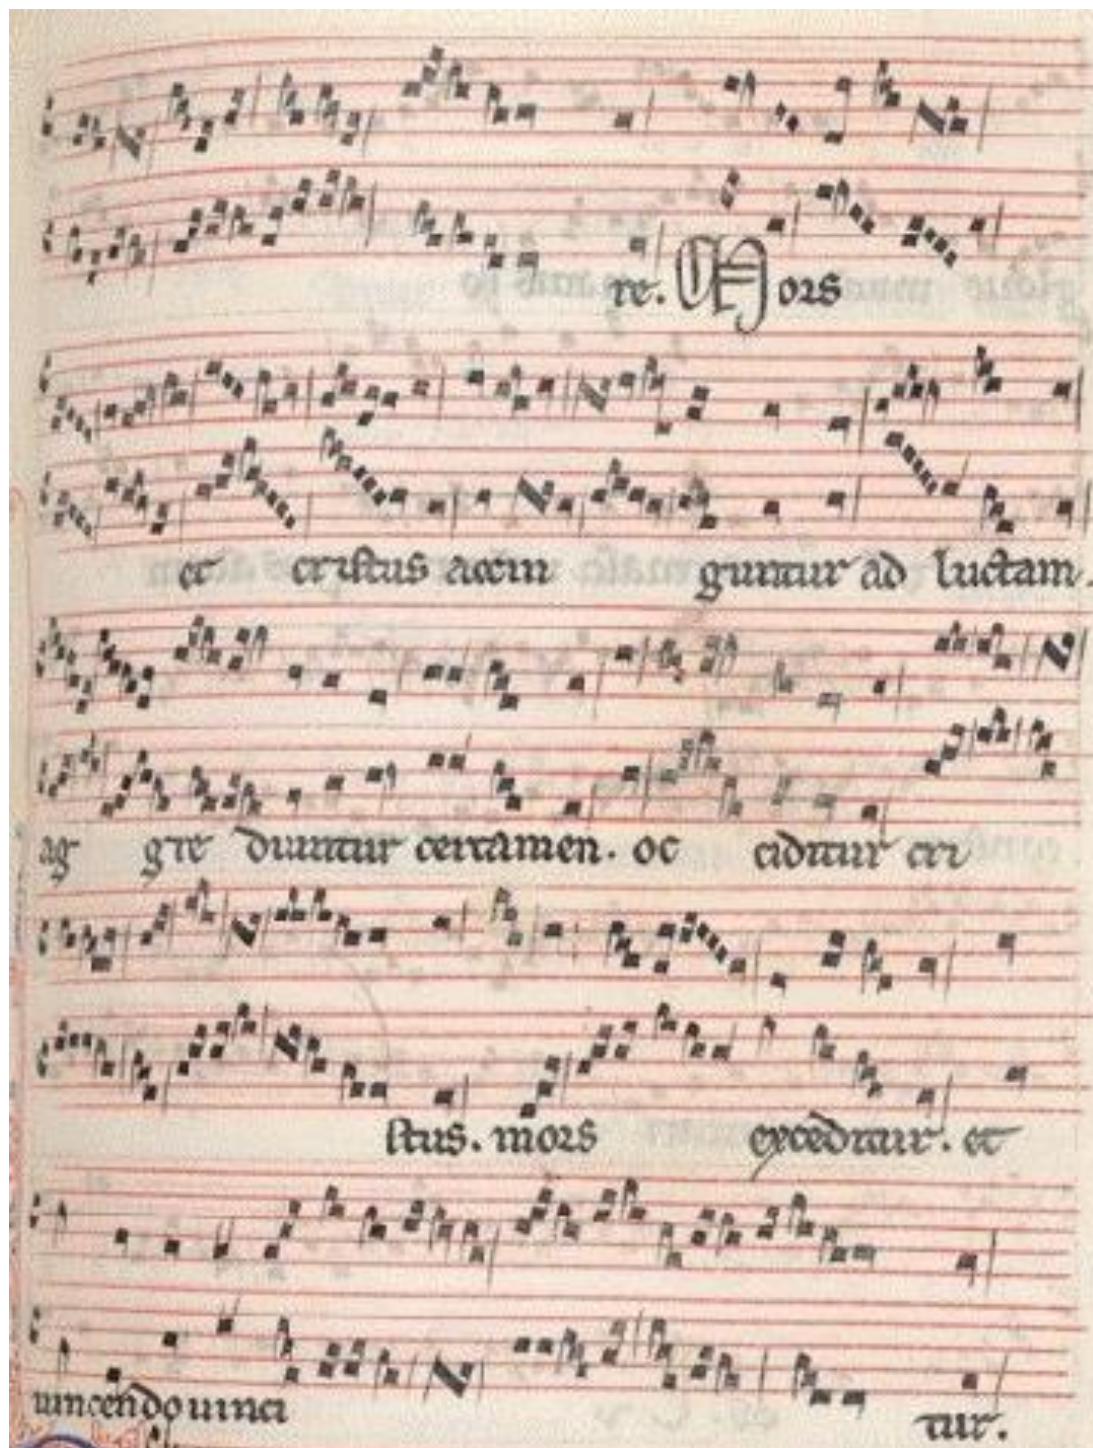 re. Mors
et cristus accin guntur ad luctam.
ag gre diuntur certamen. oc ciditur cri
stus. mors exceditur. et
uincendo uinci tur.